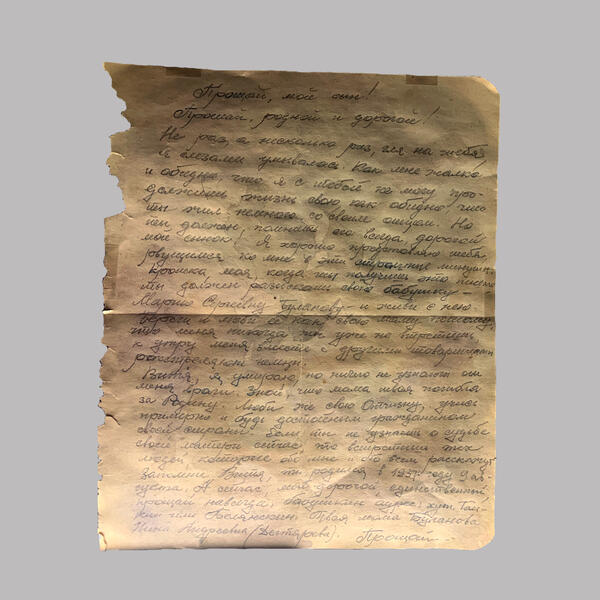 Прощай, мой сын!
Прощай, родной и дорогой!
Не раз, а несколько раз, гля на тебя
я слезами умывалась. Как мне жалко
и обидно, что я с тобой не могу про-
должить жизнь свою, как обидно что
ты жил немного со своим отцом. Но
ты должен помнить его всегда, дорогой
мой сынок! Я хорошо представляю тебя
рвущимся ко мне в эти страшные минуты
крошка моя, когда ты получишь это письмо
ты должен разыскать свою бабушку-
Марию Сергеевну Буланову и живи с нею
вместо меня никогда ты уже не встретишь
к утру меня вместе с другими товарищами
расстреляют немцы.
Витя, я умираю, но ничего не узнают от
меня враги. Знай, что мама твоя погибла
за Родину. Люби же свою Отчизну, учись
примерно и будь достойным гражданином
своей страны. Если ты не узнаешь о судьбе
своей матери сейчас, то встретишь тех
людей, которые обо мне и обо всем расскажут
Запомни Витя, ты родился в 1937 году 9 ав-
густа. А сейчас, мой дорогой, единственный
прощай навсегда, бабушкин адрес:
Твоя мама Буланова
Нина Андреевна (Дегтярева). Прощай